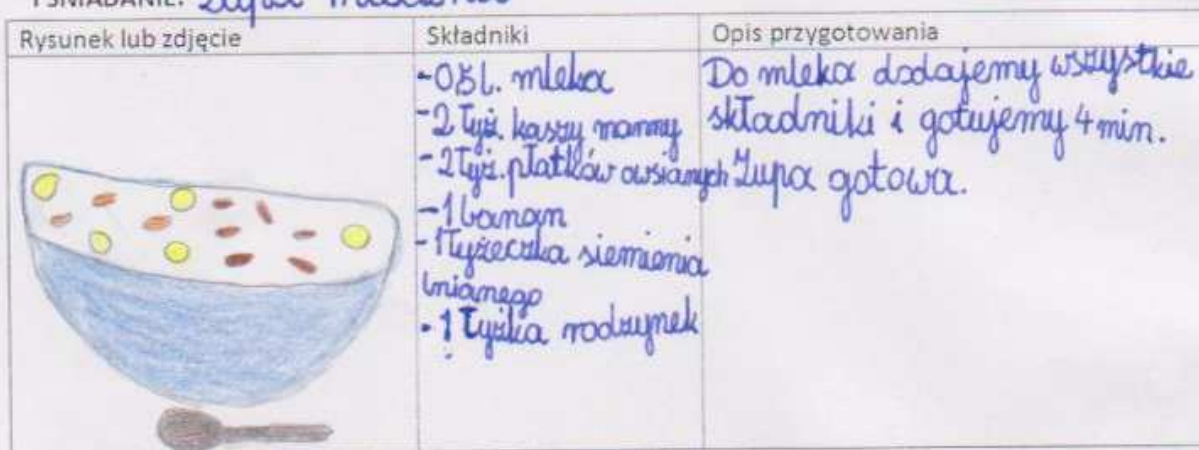 I ŚNIADANIE: Zupa mleczna
Rysunek lub zdjęcie
Składniki
Opis przygotowania
-0,5l. mleka
-2 łyż. kaszy manny
-2 łyż. płatków owsianych
-1 banan
-1 łyżeczka siemienia
lnianego
-1 łyżka rodzynek
Do mleka dodajemy wszystkie
składniki i gotujemy 4 min.
Zupa gotowa.